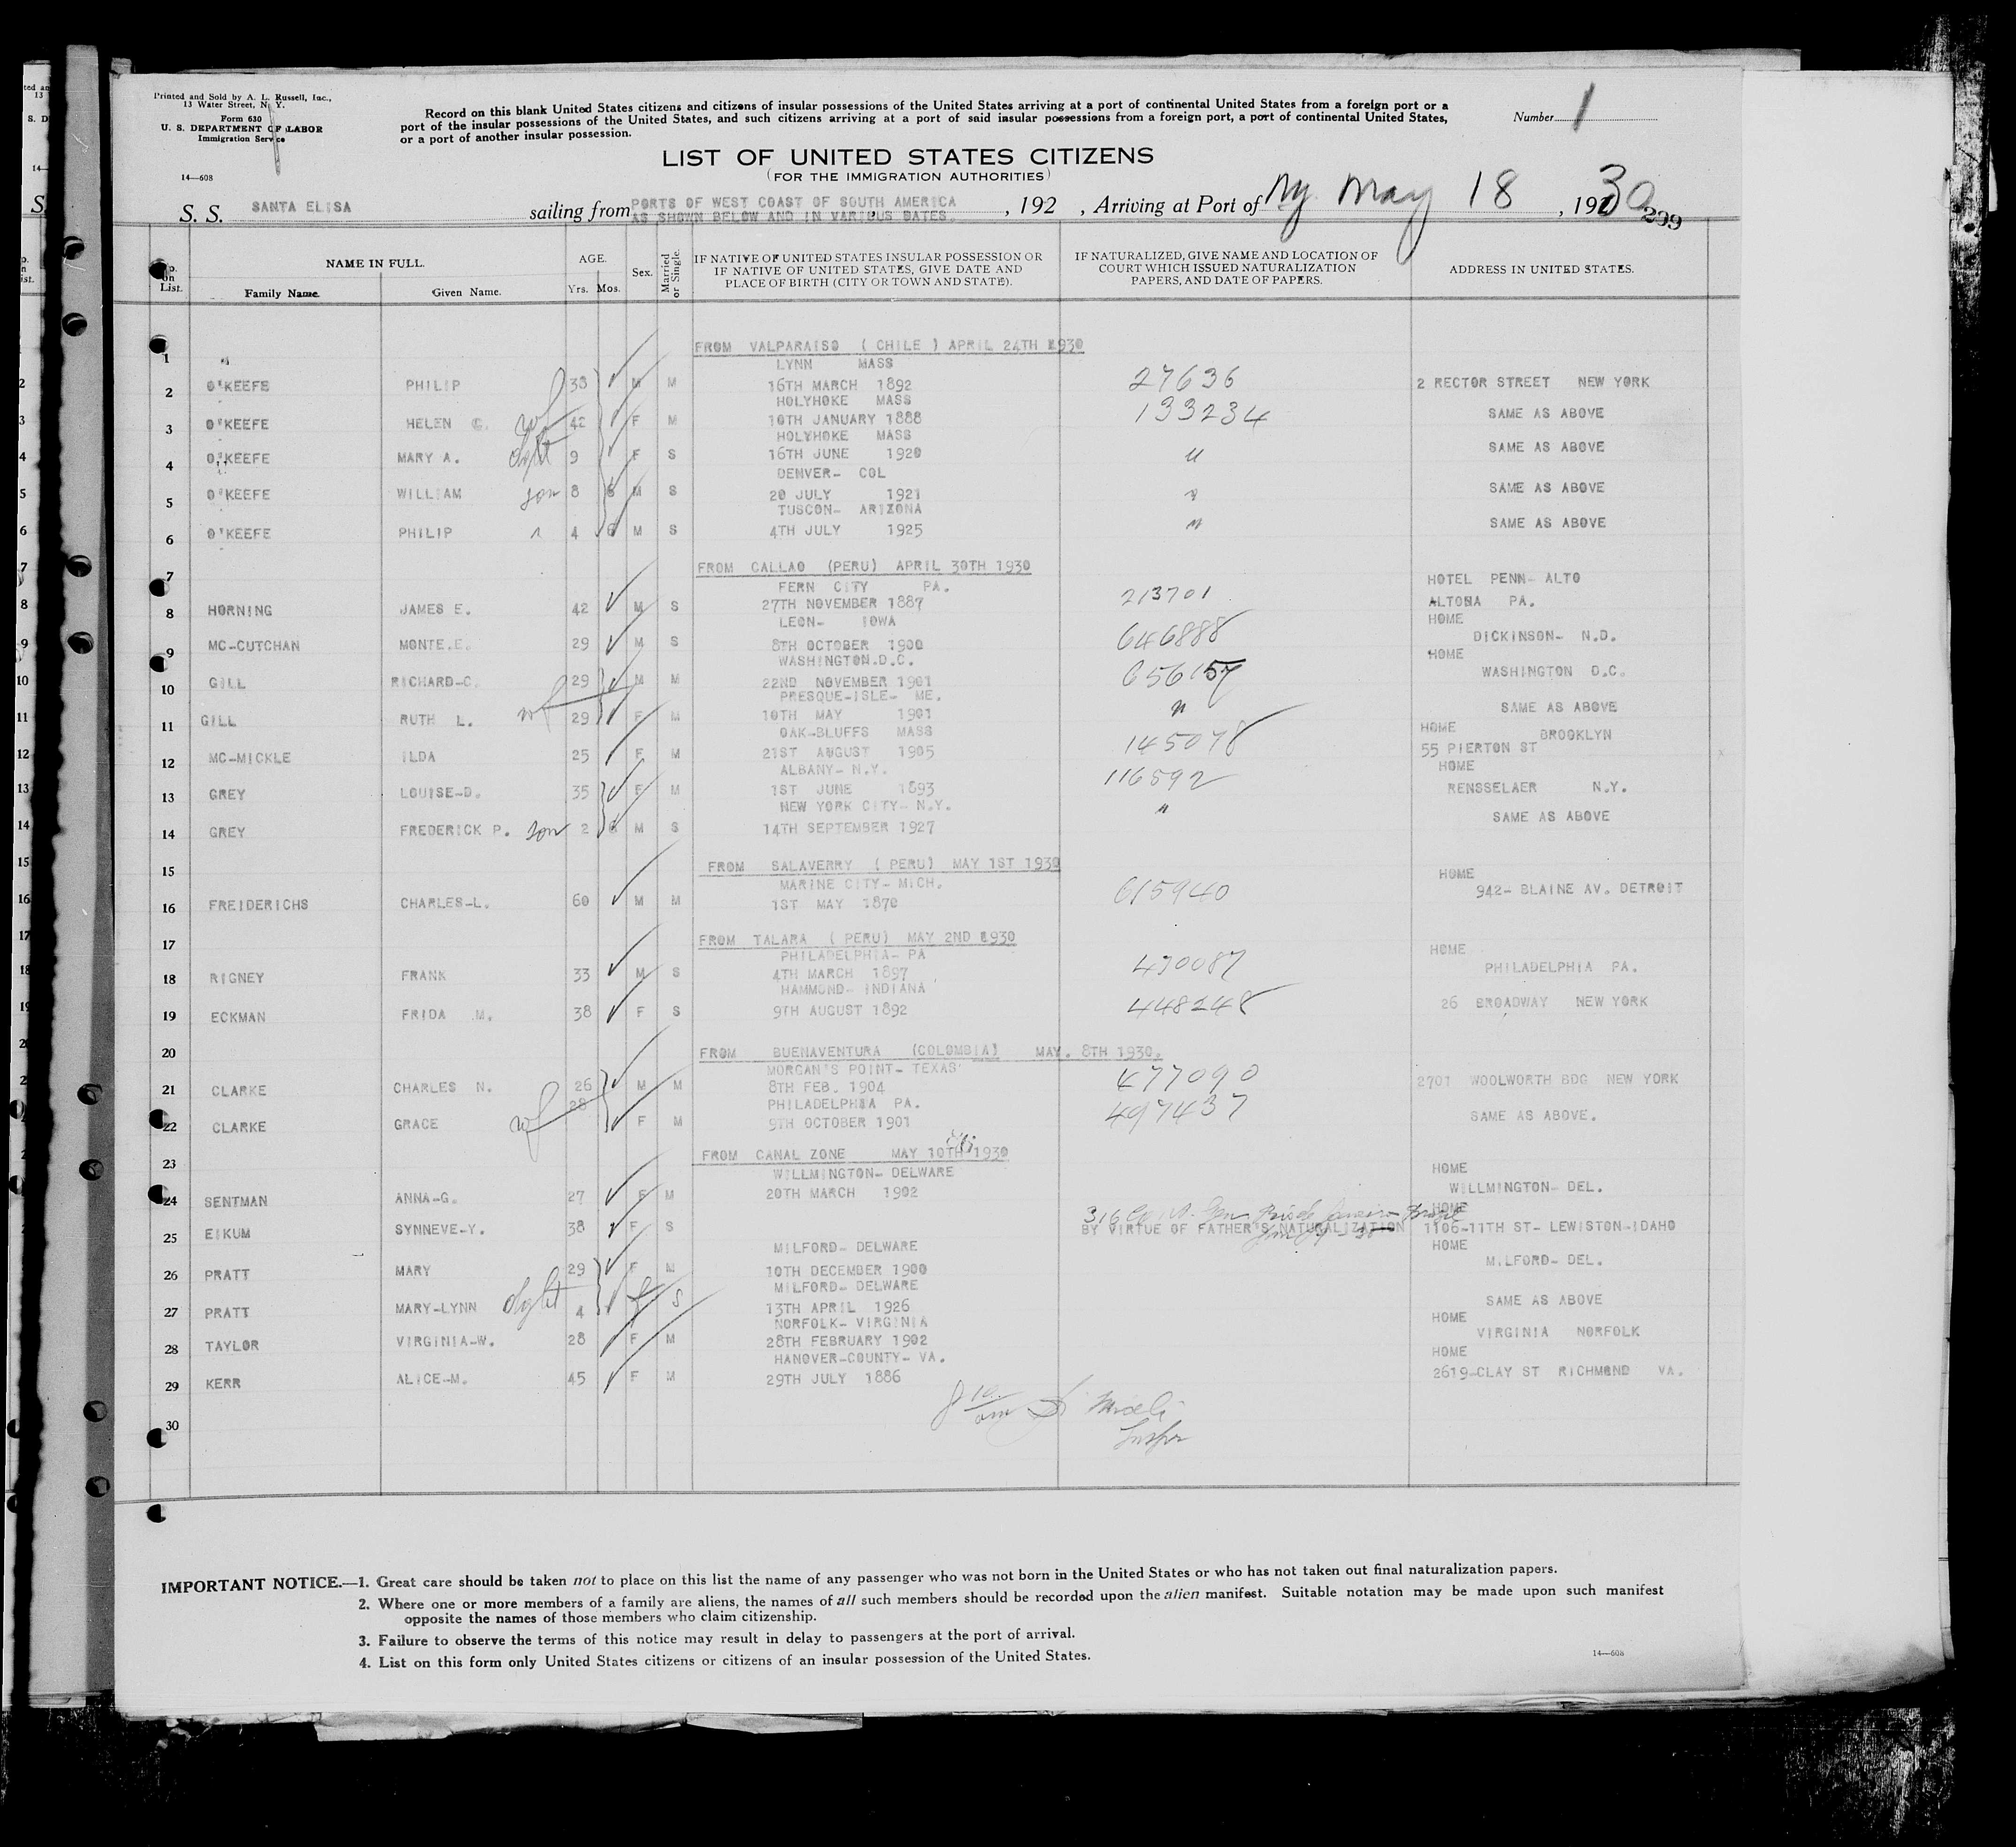 Printed and Sold by A. L. Russell, Inc.,
13 Water Street, N. Y.
Form 630
U. S. DEPARTMENT OF LABOR
Immigration Service
14—608
Record on this blank United States citizens and citizens of insular possessions of the United States arriving at a port of continental United States from a foreign port or a
port of the insular possessions of the United States, and such citizens arriving at a port of said insular possessions from a foreign port, a port of continental United States,
or a port of another insular possession.
Number 1
LIST OF UNITED STATES CITIZENS
(FOR THE IMMIGRATION AUTHORITIES)
S. S. SANTA ELISA sailing from PORTS OF WEST COAST OF SOUTH AMERICA AS SHOWN BELOW AND IN VARIOUS DATES. , 192 , Arriving at Port of Ny May 18 , 1930
299
No. on List. NAME IN FULL. Family Name. Given Name. AGE. Yrs. Mos. Sex. Married or Single. IF NATIVE OF UNITED STATES INSULAR POSSESSION OR IF NATIVE OF UNITED STATES, GIVE DATE AND PLACE OF BIRTH (CITY OR TOWN AND STATE). IF NATURALIZED, GIVE NAME AND LOCATION OF COURT WHICH ISSUED NATURALIZATION PAPERS, AND DATE OF PAPERS. ADDRESS IN UNITED STATES.
1 FROM VALPARAISO ( CHILE ) APRIL 24TH 1930
LYNN MASS
2 O'KEEFE PHILIP 38 M M 16TH MARCH 1892 27636 2 RECTOR STREET NEW YORK
HOLYHOKE MASS
3 O'KEEFE HELEN C. wf 42 F M 10TH JANUARY 1888 133234 SAME AS ABOVE
HOLYHOKE MASS
4 O'KEEFE MARY A. dght 9 F S 16TH JUNE 1920 " SAME AS ABOVE
DENVER- COL
5 O'KEEFE WILLIAM son 8 8 M S 20 JULY 1921 " SAME AS ABOVE
TUSCON- ARIZONA
6 O'KEEFE PHILIP " 4 6 M S 4TH JULY 1925 " SAME AS ABOVE
7 FROM CALLAO (PERU) APRIL 30TH 1930
FERN CITY PA. HOTEL PENN- ALTO
8 HORNING JAMES E. 42 M S 27TH NOVEMBER 1887 213701 ALTONA PA.
LEON- IOWA HOME
9 MC-CUTCHAN MONTE.E. 29 M S 8TH OCTOBER 1900 646888 DICKINSON- N.D.
WASHINGTON.D.C. HOME
10 GILL RICHARD-C. 29 M M 22ND NOVEMBER 1901 656157 WASHINGTON D.C.
PRESQUE-ISLE- ME.
11 GILL RUTH L. wf 29 F M 10TH MAY 1901 " SAME AS ABOVE
OAK-BLUFFS MASS HOME BROOKLYN
12 MC-MICKLE ILDA 25 F M 21ST AUGUST 1905 145078 55 PIERTON ST
ALBANY- N.Y. HOME
13 GREY LOUISE-D. 35 F M 1ST JUNE 1893 116592 RENSSELAER N.Y.
NEW YORK CITY- N.Y.
14 GREY FREDERICK P. son 2 6 M S 14TH SEPTEMBER 1927 " SAME AS ABOVE
15 FROM SALAVERRY ( PERU) MAY 1ST 1930
MARINE CITY- MICH. HOME
16 FREIDERICHS CHARLES-L. 60 M M 1ST MAY 1870 615940 942- BLAINE AV. DETROIT
17 FROM TALARA ( PERU) MAY 2ND 1930
PHILADELPHIA- PA HOME
18 RIGNEY FRANK 33 M S 4TH MARCH 1897 430087 PHILADELPHIA PA.
HAMMOND- INDIANA
19 ECKMAN FRIDA .M. 38 F S 9TH AUGUST 1892 448248 26 BROADWAY NEW YORK
20 FROM BUENAVENTURA (COLOMBIA) MAY. 8TH 1930.
MORGAN'S POINT- TEXAS
21 CLARKE CHARLES N. 26 M M 8TH FEB. 1904 477090 2701 WOOLWORTH BDG NEW YORK
PHILADELPHIA PA.
22 CLARKE GRACE wf 28 F M 9TH OCTOBER 1901 497437 SAME AS ABOVE.
23 FROM CANAL ZONE MAY 10TH 1930
WILLMINGTON- DELWARE HOME
24 SENTMAN ANNA-G. 27 F M 20TH MARCH 1902 WILLMINGTON- DEL.
316 HOME
25 EIKUM SYNNEVE-Y. 38 F S BY VIRTUE OF FATHER'S NATURALIZATION 1106-11TH ST- LEWISTON-IDAHO
MILFORD- DELWARE HOME
26 PRATT MARY 29 F M 10TH DECEMBER 1900 MILFORD- DEL.
MILFORD- DELWARE
27 PRATT MARY-LYNN dght 4 F S 13TH APRIL 1926 SAME AS ABOVE
NORFOLK- VIRGINIA HOME
28 TAYLOR VIRGINIA-W. 28 F M 28TH FEBRUARY 1902 VIRGINIA NORFOLK
HANOVER-COUNTY- VA. HOME
29 KERR ALICE-M. 45 F M 29TH JULY 1886 2619-CLAY ST RICHMOND VA.
30
IMPORTANT NOTICE.—1. Great care should be taken not to place on this list the name of any passenger who was not born in the United States or who has not taken out final naturalization papers.
2. Where one or more members of a family are aliens, the names of all such members should be recorded upon the alien manifest. Suitable notation may be made upon such manifest
opposite the names of those members who claim citizenship.
3. Failure to observe the terms of this notice may result in delay to passengers at the port of arrival.
4. List on this form only United States citizens or citizens of an insular possession of the United States.
14—608